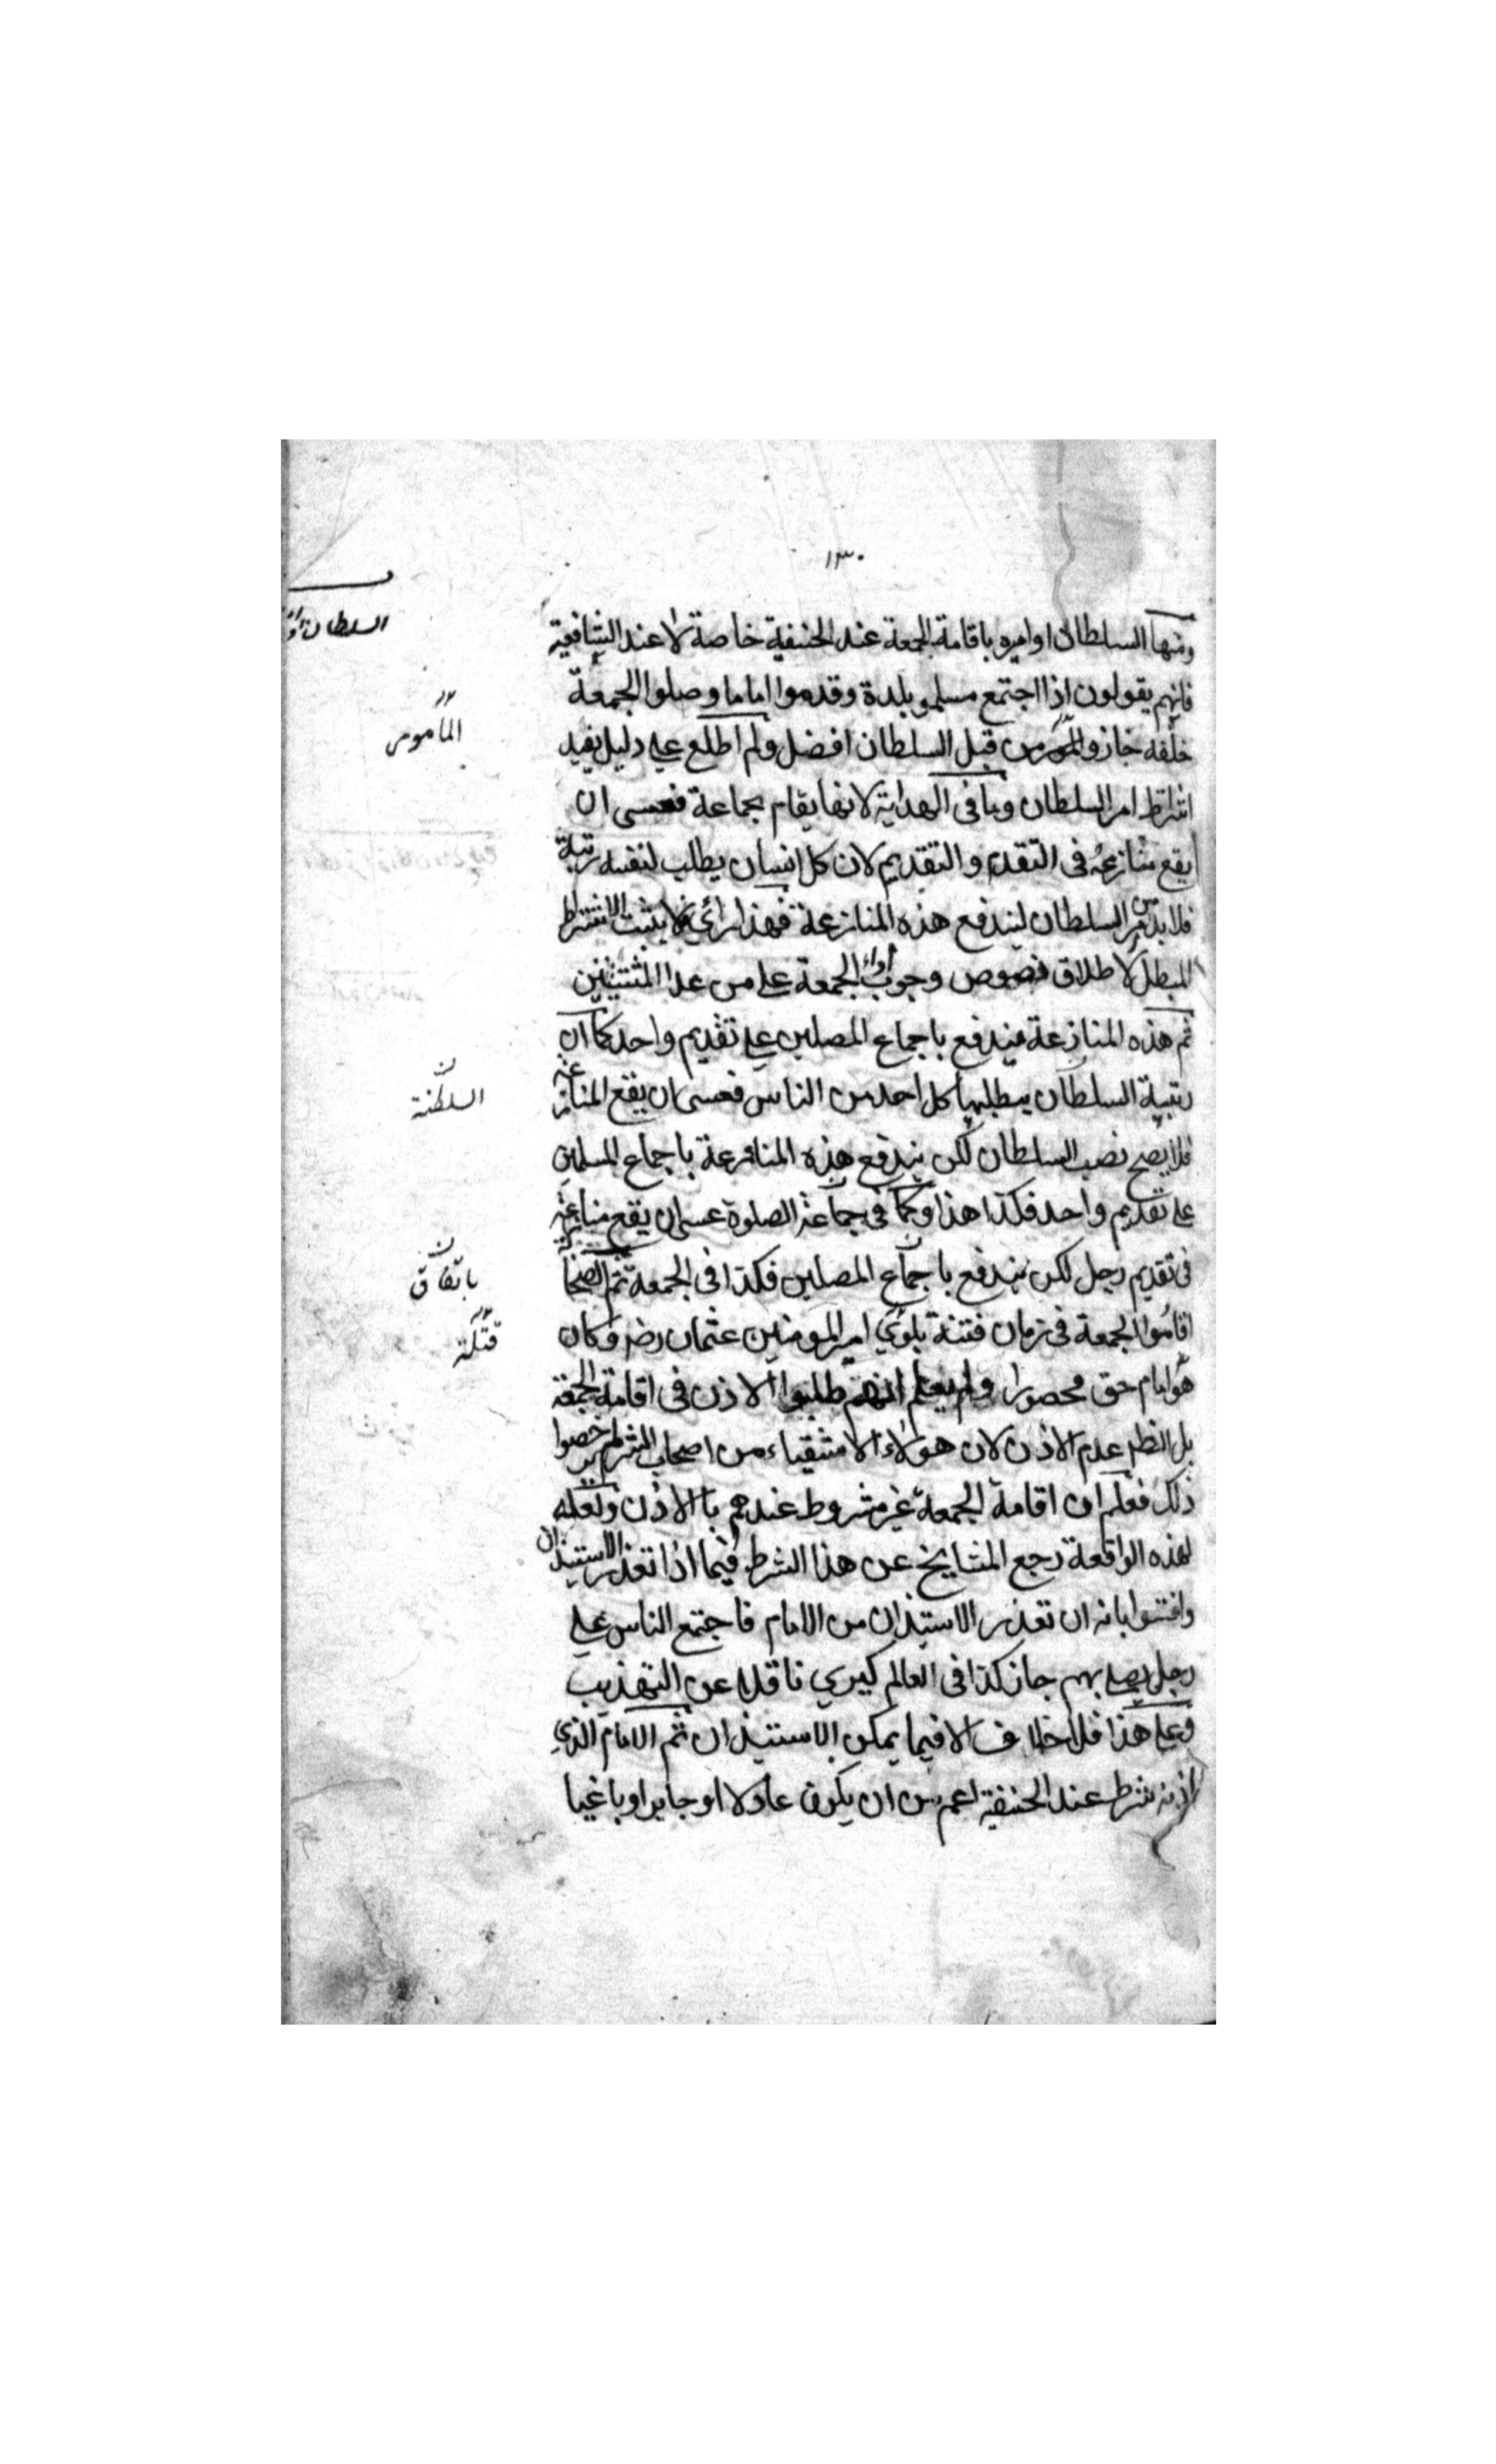 ١٣٠
ومنها السلطان او اميره باقامة الجمعة عند الحنفية خاصة لا عند الشافعية
فانهم يقولون اذا اجتمع مسلمو بلدة وقدموا اماما وصلوا الجمعة
خلفه جاز من قبل السلطان افضل ولم اطلع على دليل يفيد
اشتراط امر السلطان وما فى الهداية لانها يقام بجماعة فعسى ان
يقع منازعة فى التقدم والتقديم لان كل انسان يطلب لنفسه رتبة
فلا بد من امر السلطان ليندفع هذه المنازعة فهذا رأي لا يثبت الاشتراط
المبطل لاطلاق نصوص وجوب اداء الجمعة على من عدا المستثنين
ثم هذه المنازعة يندفع باجماع المصلين على تقديم واحد كما ان
رتبة السلطان يطلبها كل احد من الناس فعسى ان يقع المنازعة
فلا يصح نصب السلطان لكن يندفع هذه المنازعة باجماع المسلمين
على تقديم واحد فكذا هذا وكما فى جماعة الصلوة عسى ان يقع منازعة
فى تقديم رجل لكن يندفع باجماع المصلين فكذا فى الجمعة ثم الصحابة
اقاموا الجمعة فى زمان فتنة بلوي امير المومنين عثمان رضى وكان
هو امام حق محصورا ولم يعلم انهم طلبوا الاذن فى اقامة الجمعة
بل الظاهر عدم الاذن لان هؤلاء الاشقياء من اصحاب الشر لم يرخصوا
ذلك فعلم ان اقامة الجمعة غير مشروط عندهم بالاذن ولعله
لهذه الواقعة رجع المشايخ عن هذا الشرط فيما اذا تعذر الاستيذان
وافتوا بانه ان تعذر الاستيذان من الامام فاجتمع الناس على
رجل يصلى بهم جاز كذا فى العالم كيري ناقلا عن التهذيب
وعلى هذا فلا خلاف الا فيما يمكن الاستيذان ثم الامام الذي
اذنه شرط عند الحنفية اعم من ان يكون عادلا او جايرا او باغيا
السلطان
المأمور
السلطنة
باتفاق
قتلة